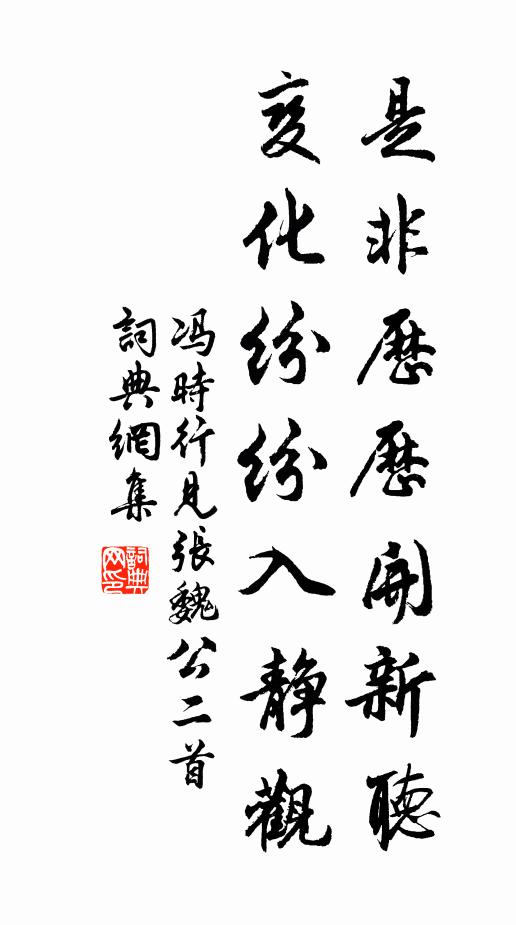 是非歷歷開新聽
變化紛紛入靜觀
馮時行見張魏公二首
詞典網集
詞典网印